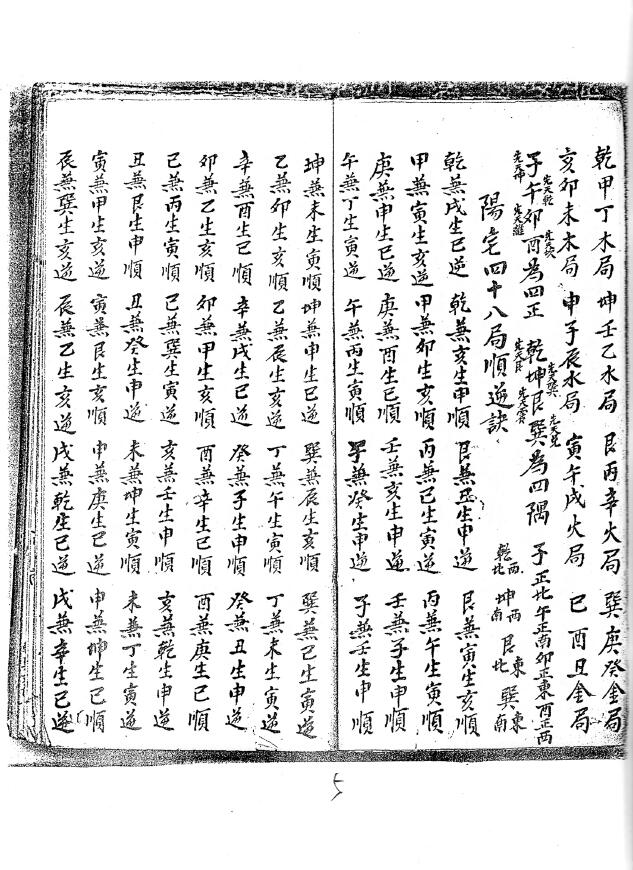 乾甲丁木局 坤壬乙水局 艮丙辛火局 巽庚癸金局
亥卯未木局 申子辰水局 寅午戌火局 巳酉丑金局
子午卯酉為四正 乾坤艮巽為四隅 子正北午正南卯正東酉正西
先天坤 先天乾 先天離 先天坎 先天艮 先天巽 先天震 先天兌
乾西北 坤西南 艮東北 巽東南
陽宅四十八局順逆訣
乾兼戌生巳逆 乾兼亥生申順 艮兼丑生申逆 艮兼寅生亥順
甲兼寅生亥逆 甲兼卯生亥順 丙兼巳生寅逆 丙兼午生寅順
庚兼申生巳逆 庚兼酉生巳順 壬兼亥生申逆 壬兼子生申順
午兼丁生寅逆 午兼丙生寅順 子兼癸生申逆 子兼壬生申順
坤兼未生寅順 坤兼申生巳逆 巽兼辰生亥順 巽兼巳生寅逆
乙兼卯生亥順 乙兼辰生亥逆 丁兼午生寅順 丁兼未生寅逆
辛兼酉生巳順 辛兼戌生巳逆 癸兼子生申順 癸兼丑生申逆
卯兼乙生亥逆 卯兼甲生亥順 酉兼辛生巳逆 酉兼庚生巳順
巳兼丙生寅順 巳兼巽生寅逆 亥兼壬生申順 亥兼乾生申逆
丑兼艮生申順 丑兼癸生申逆 未兼坤生寅順 未兼丁生寅逆
寅兼甲生亥逆 寅兼艮生亥順 申兼庚生巳逆 申兼坤生巳順
辰兼巽生亥逆 辰兼乙生亥逆 戌兼乾生巳逆 戌兼辛生巳逆
5